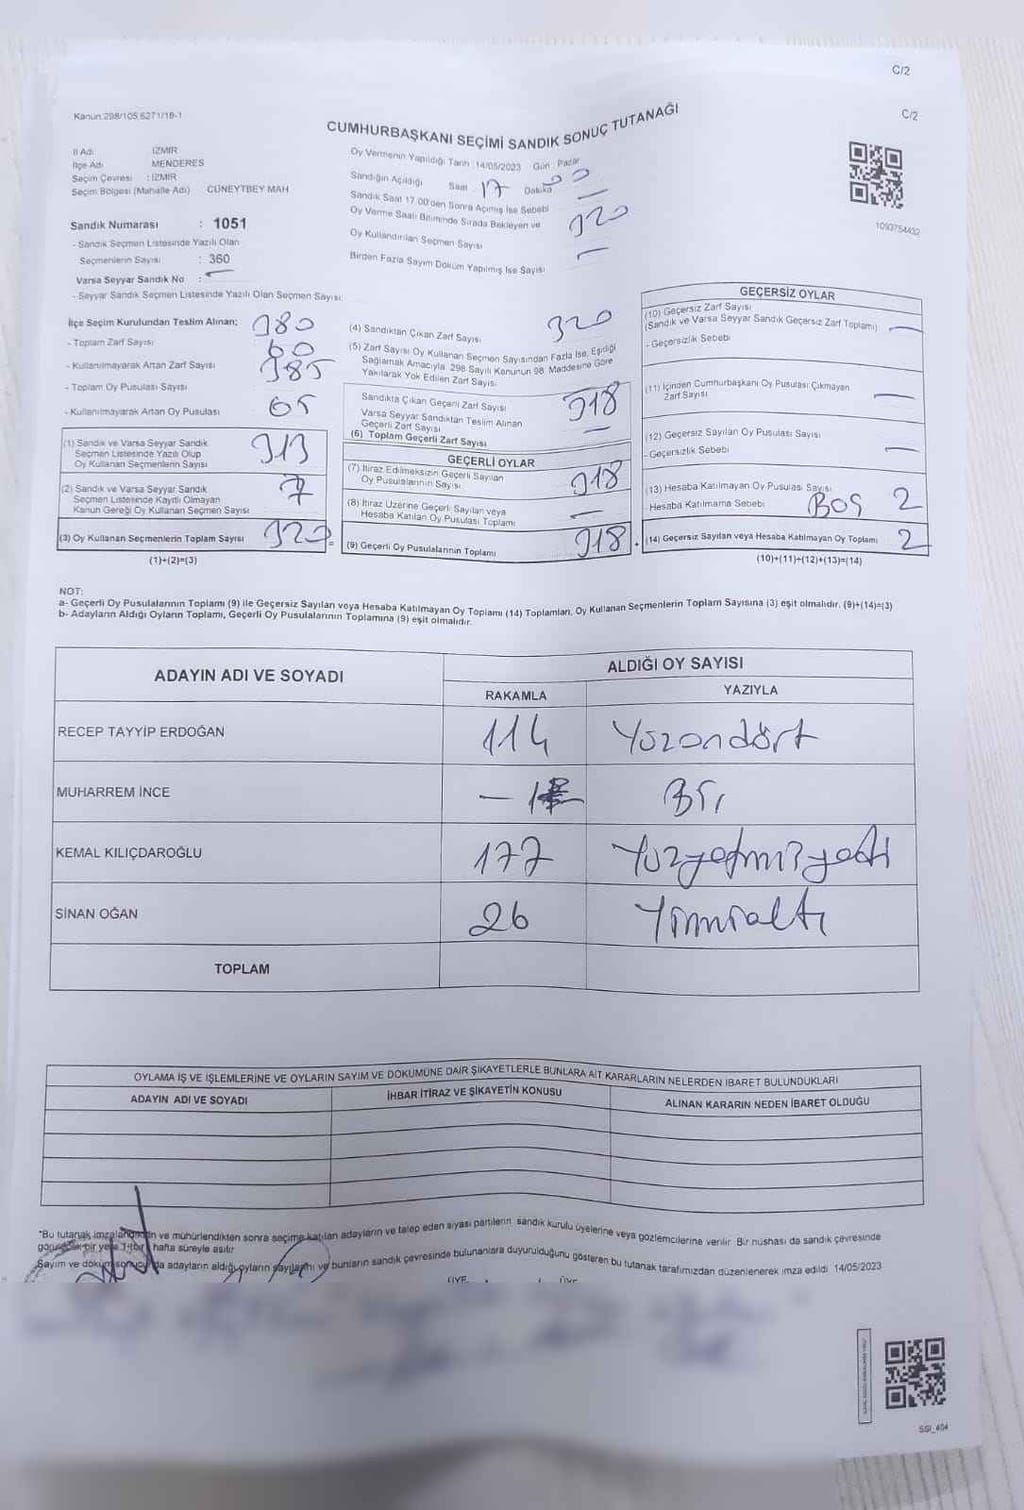 C/2
C/2
Kanun:298/105.6271/18-1
CUMHURBAŞKANI SEÇİMİ SANDIK SONUÇ TUTANAĞI
İl Adı İZMİR
İlçe Adı MENDERES
Seçim Çevresi : İZMİR
Seçim Bölgesi (Mahalle Adı) CÜNEYTBEY MAH
Sandık Numarası : 1051
- Sandık Seçmen Listesinde Yazılı Olan
Seçmenlerin Sayısı : 360
Varsa Seyyar Sandık No : —
- Seyyar Sandık Seçmen Listesinde Yazılı Olan Seçmen Sayısı:
Oy Vermenin Yapıldığı Tarih : 14/05/2023 Gün : Pazar
Sandığın Açıldığı Saat : 17 Dakika 00
Sandık Saat 17.00'den Sonra Açılmış İse Sebebi —
Oy Verme Saati Bitiminde Sırada Bekleyen ve
Oy Kullandırılan Seçmen Sayısı 320
Birden Fazla Sayım Döküm Yapılmış İse Sayısı —
1093754432
İlçe Seçim Kurulundan Teslim Alınan;
- Toplam Zarf Sayısı 380
- Kullanılmayarak Artan Zarf Sayısı 60
- Toplam Oy Pusulası Sayısı 385
- Kullanılmayarak Artan Oy Pusulası 65
(1) Sandık ve Varsa Seyyar Sandık
Seçmen Listesinde Yazılı Olup
Oy Kullanan Seçmenlerin Sayısı 313
(2) Sandık ve Varsa Seyyar Sandık
Seçmen Listesinde Kayıtlı Olmayan
Kanun Gereği Oy Kullanan Seçmen Sayısı 7
(3) Oy Kullanan Seçmenlerin Toplam Sayısı 320
(1)+(2)=(3)
(4) Sandıktan Çıkan Zarf Sayısı 320
(5) Zarf Sayısı Oy Kullanan Seçmen Sayısından Fazla İse, Eşitliği
Sağlamak Amacıyla 298 Sayılı Kanunun 98. Maddesine Göre
Yakılarak Yok Edilen Zarf Sayısı
Sandıkta Çıkan Geçerli Zarf Sayısı 318
Varsa Seyyar Sandıktan Teslim Alınan
Geçerli Zarf Sayısı —
(6) Toplam Geçerli Zarf Sayısı
GEÇERLİ OYLAR
(7) İtiraz Edilmeksizin Geçerli Sayılan
Oy Pusulalarının Sayısı 318
(8) İtiraz Üzerine Geçerli Sayılan veya
Hesaba Katılan Oy Pusulası Toplamı —
(9) Geçerli Oy Pusulalarının Toplamı 318
GEÇERSİZ OYLAR
(10) Geçersiz Zarf Sayısı
(Sandık ve Varsa Seyyar Sandık Geçersiz Zarf Toplamı) —
- Geçersizlik Sebebi
(11) İçinden Cumhurbaşkanı Oy Pusulası Çıkmayan
Zarf Sayısı —
(12) Geçersiz Sayılan Oy Pusulası Sayısı
- Geçersizlik Sebebi —
(13) Hesaba Katılmayan Oy Pusulası Sayısı
Hesaba Katılmama Sebebi BOŞ 2
(14) Geçersiz Sayılan veya Hesaba Katılmayan Oy Toplamı 2
(10)+(11)+(12)+(13)=(14)
NOT:
a- Geçerli Oy Pusulalarının Toplamı (9) ile Geçersiz Sayılan veya Hesaba Katılmayan Oy Toplamı (14) Toplamları, Oy Kullanan Seçmenlerin Toplam Sayısına (3) eşit olmalıdır. (9)+(14)=(3)
b- Adayların Aldığı Oyların Toplamı, Geçerli Oy Pusulalarının Toplamına (9) eşit olmalıdır.
ADAYIN ADI VE SOYADI
ALDIĞI OY SAYISI
RAKAMLA YAZIYLA
RECEP TAYYİP ERDOĞAN 114 Yüzondört
MUHARREM İNCE – 1 Bir
KEMAL KILIÇDAROĞLU 177 Yüzyetmişyedi
SİNAN OĞAN 26 Yirmialtı
TOPLAM
OYLAMA İŞ VE İŞLEMLERİNE VE OYLARIN SAYIM VE DÖKÜMÜNE DAİR ŞİKAYETLERLE BUNLARA AİT KARARLARIN NELERDEN İBARET BULUNDUKLARI
ADAYIN ADI VE SOYADI İHBAR İTİRAZ VE ŞİKAYETİN KONUSU ALINAN KARARIN NEDEN İBARET OLDUĞU
*Bu tutanak imzalandıktan ve mühürlendikten sonra seçime katılan adayların ve talep eden siyasi partilerin sandık kurulu üyelerine veya gözlemcilerine verilir. Bir nüshası da sandık çevresinde
görülebilir bir yere 1 (bir) hafta süreyle asılır
Sayım ve döküm sonucunda adayların aldığı oyların sayılarını ve bunların sandık çevresinde bulunanlara duyurulduğunu gösteren bu tutanak tarafımızdan düzenlenerek imza edildi. 14/05/2023
ÜYE ÜYE
SSI_404